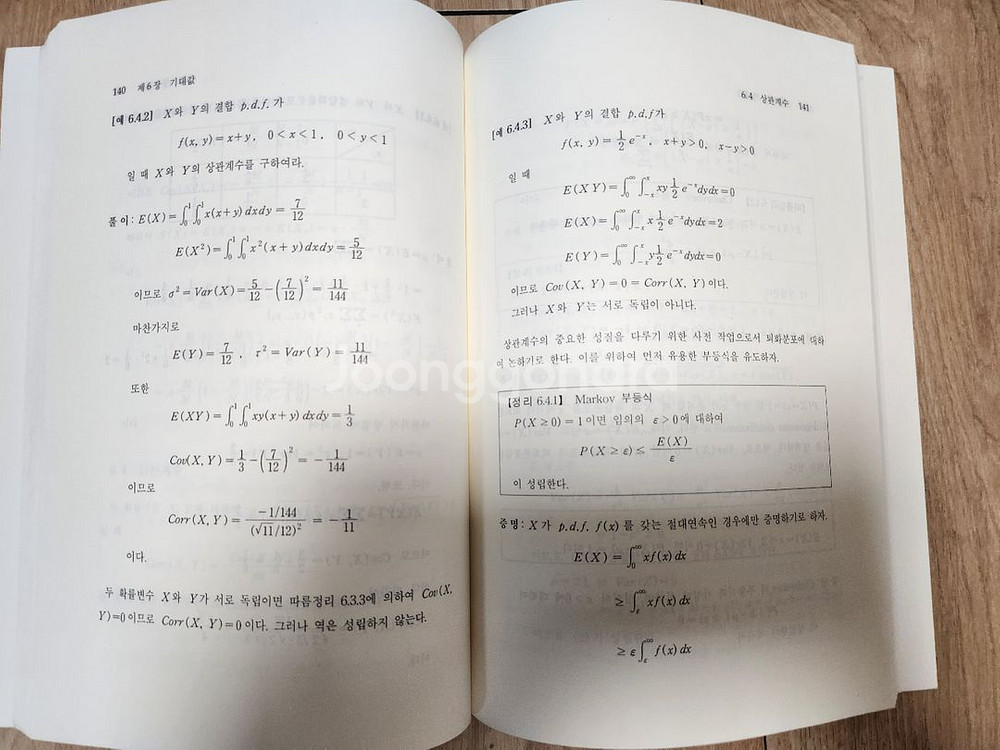 140 제6장 기대값
[예 6.4.2] X와 Y의 결합 p.d.f.가
f(x, y)=x+y, 0<x<1, 0<y<1
일 때 X와 Y의 상관계수를 구하여라.
풀이: E(X)=∫₀¹∫₀¹x(x+y)dxdy=7/12
E(X²)=∫₀¹∫₀¹x²(x+y)dxdy=5/12
이므로 σ²=Var(X)=5/12-(7/12)²=11/144
마찬가지로
E(Y)=7/12, τ²=Var(Y)=11/144
또한
E(XY)=∫₀¹∫₀¹xy(x+y)dxdy=1/3
Cov(X, Y)=1/3-(7/12)²=-1/144
이므로
Corr(X, Y)=-1/144/(√11/12)²=-1/11
이다.
두 확률변수 X와 Y가 서로 독립이면 따름정리 6.3.3에 의하여 Cov(X,
Y)=0이므로 Corr(X, Y)=0이다. 그러나 역은 성립하지 않는다.
6.4 상관계수 141
[예 6.4.3] X와 Y의 결합 p.d.f가
f(x, y)=1/2 e⁻ˣ, x+y>0, x-y>0
일 때
E(XY)=∫₀^∞∫₋ₓˣ xy 1/2 e⁻ˣdydx=0
E(X)=∫₀^∞∫₋ₓˣ x 1/2 e⁻ˣdydx=2
E(Y)=∫₀^∞∫₋ₓˣ y 1/2 e⁻ˣdydx=0
이므로 Cov(X, Y)=0=Corr(X, Y)이다.
그러나 X와 Y는 서로 독립이 아니다.
상관계수의 중요한 성질을 다루기 위한 사전 작업으로서 퇴화분포에 대하
여 논하기로 한다. 이를 위하여 먼저 유용한 부등식을 유도하자.
Joonggonara
【정리 6.4.1】 Markov 부등식
P(X≥0)=1이면 임의의 ε>0에 대하여
P(X≥ε)≤E(X)/ε
이 성립한다.
증명: X가 p.d.f. f(x)를 갖는 절대연속인 경우에만 증명하기로 하자.
E(X)=∫₀^∞ xf(x)dx
≥∫_ε^∞ xf(x)dx
≥ε∫_ε^∞ f(x)dx